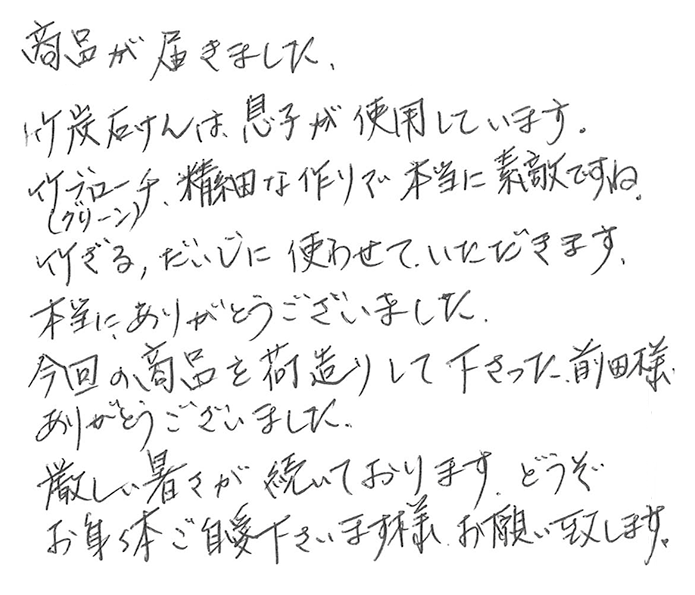 商品が届きました、
竹炭石けんは、息子が使用しています。
竹ブローチ、精細な作りで本当に素敵ですね。
(グリーン)
竹ざる、だいじに使わせていただきます、
本当に、ありがとうございました、
今回の商品を荷造りして下さった、前田様
ありがとうございました、
厳しい暑さが続いております、どうぞ
お身体ご自愛下さいます様お願い致します。